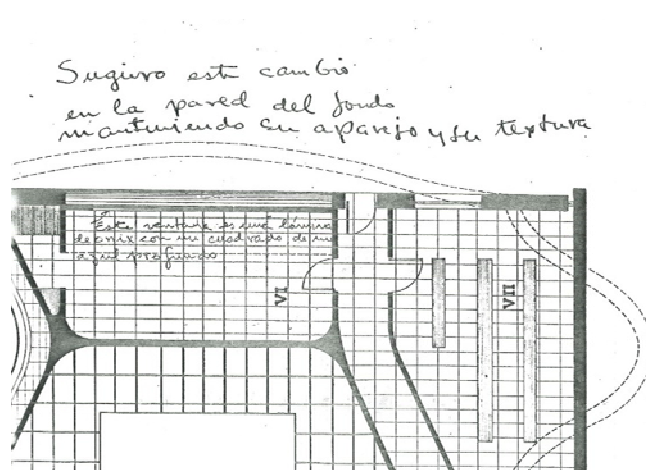 Sugiero este cambio
en la pared del fondo
manteniendo su aparejo y su textura
Esta ventana es una lámina
de onix con un cuadrado de un
azul profundo
VI
VII